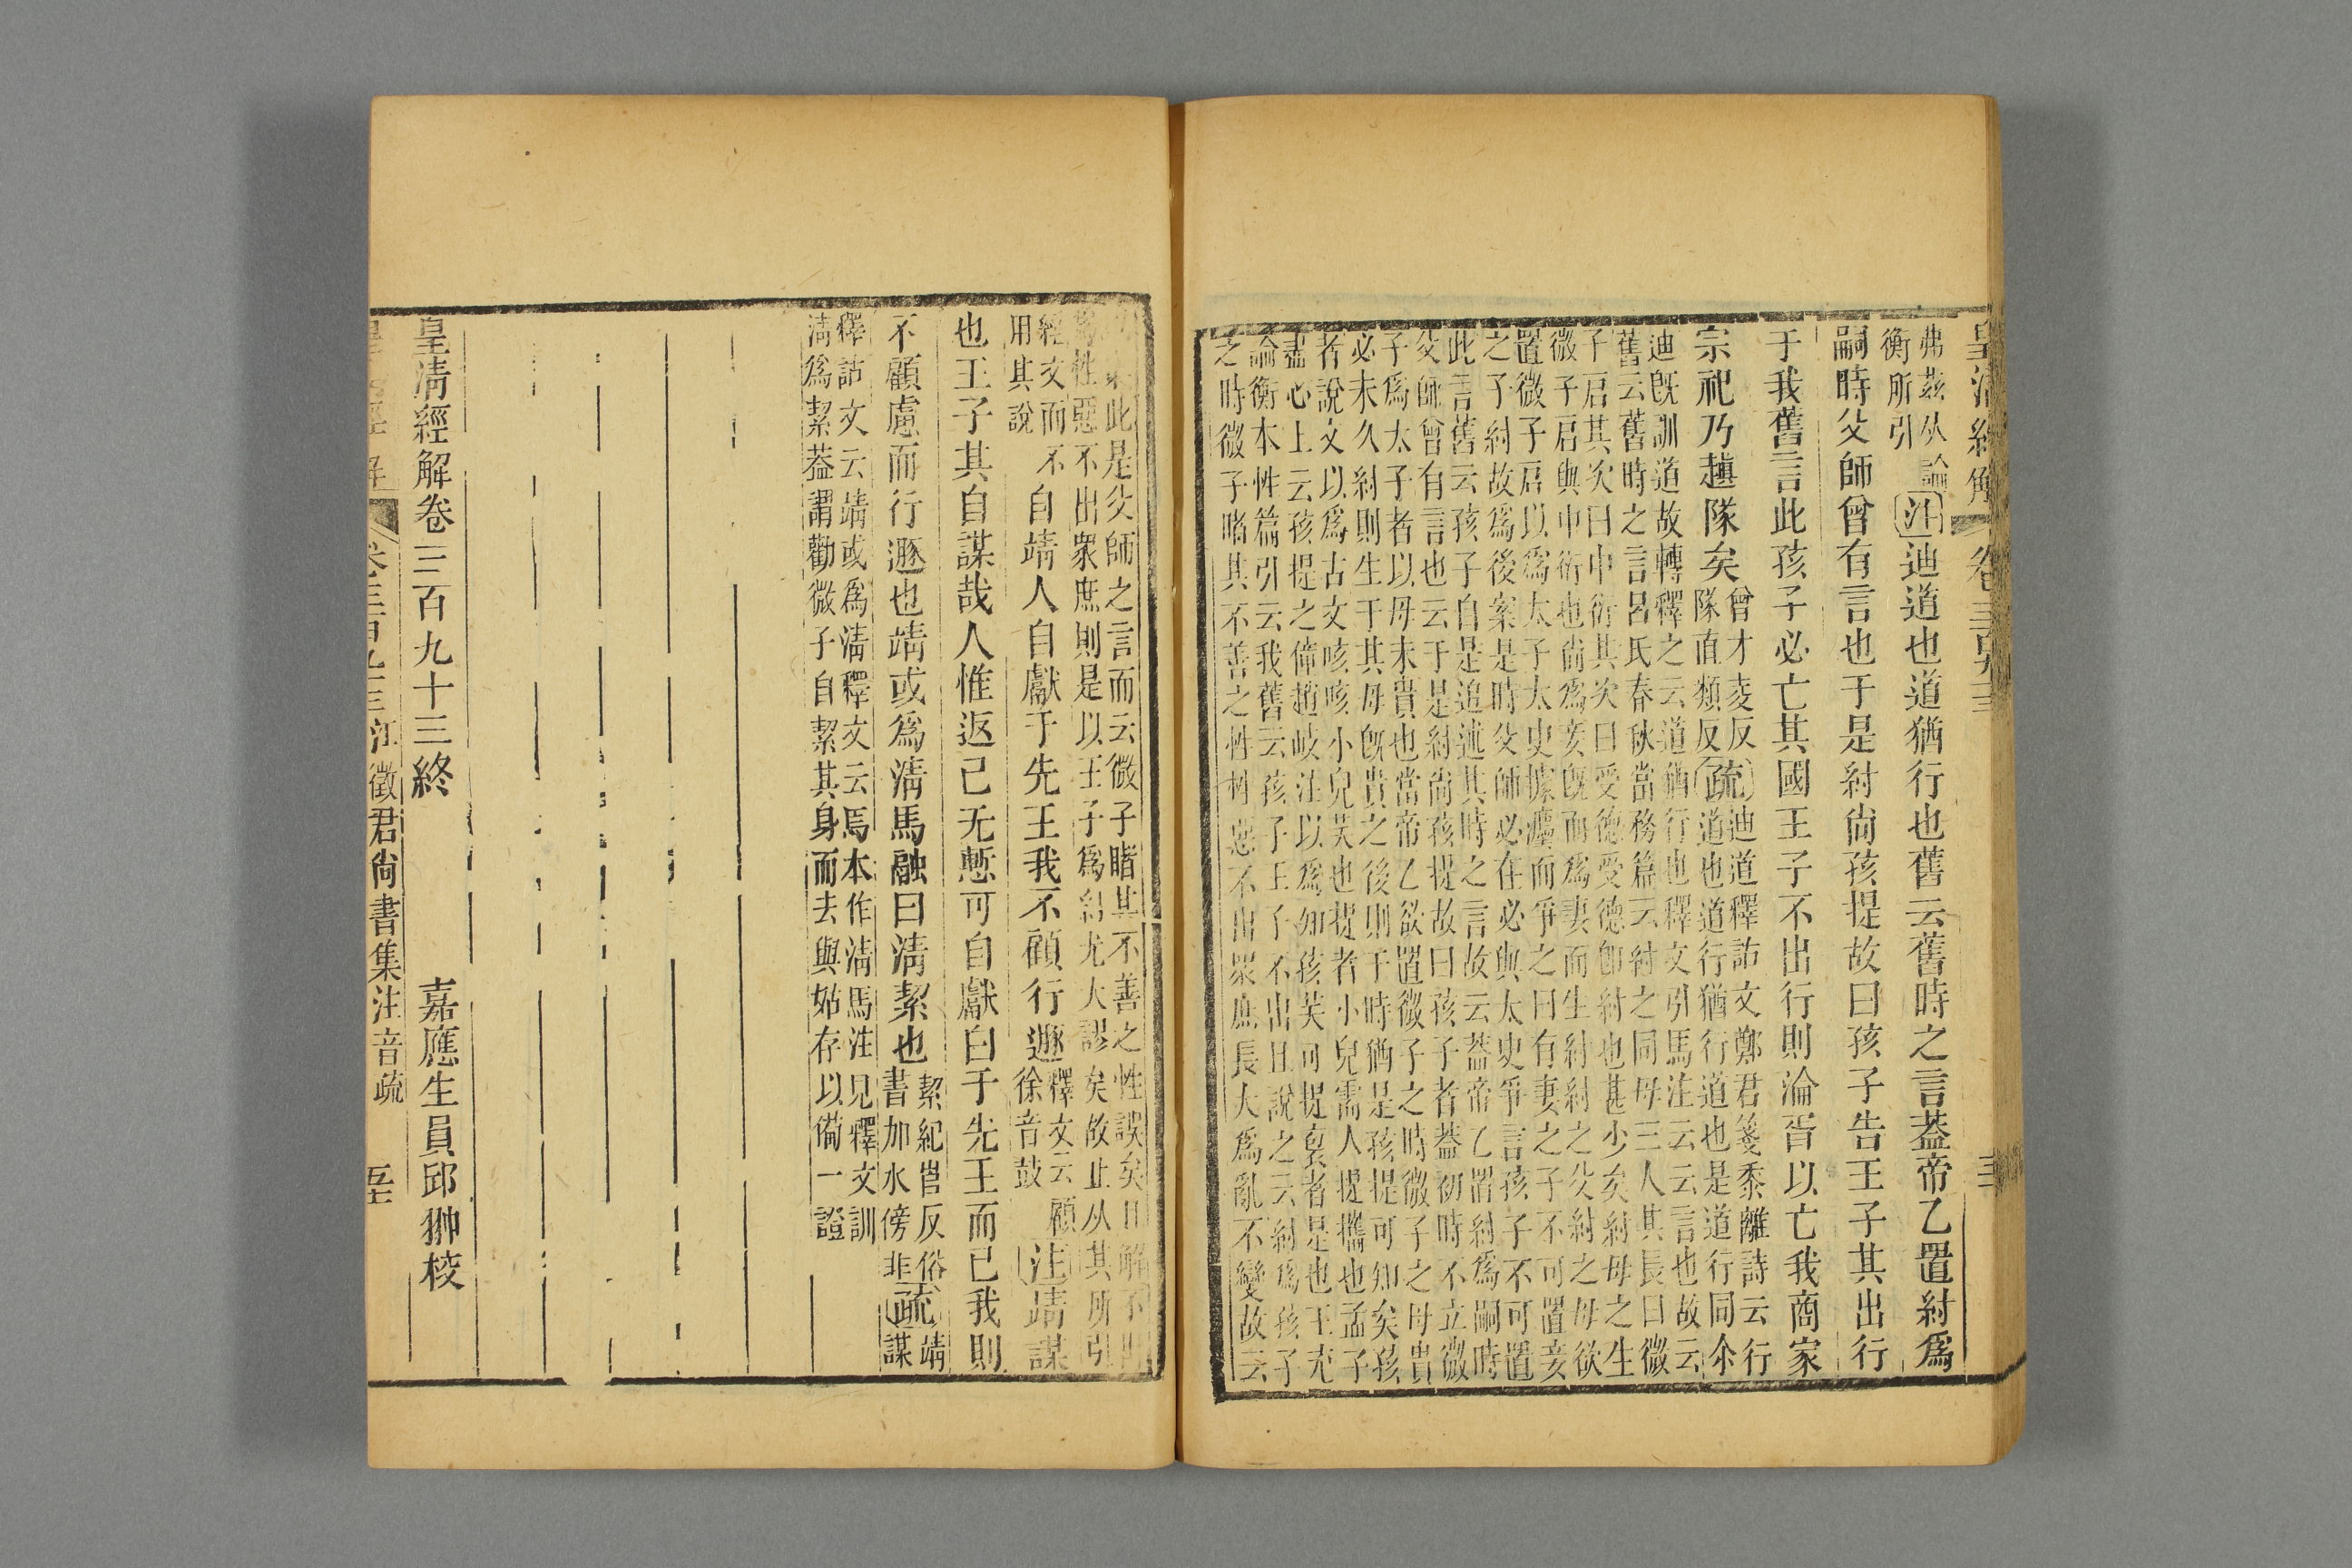 皇清經解 卷三百九十三
弗兹从論
衡所引
注迪道也道猶行也舊云舊時之言葢帝乙置紂爲
嗣時父師曾有言也于是紂尙孩提故曰孩子告王子其出行
于我舊言此孩子必亡其國王子不出行則淪胥以亡我商家
宗祀乃𧽻隊矣
曾才夌反
隊直類反
疏
迪道釋詁文鄭君箋黍離詩云行
道也道行猶行道也是道行同尒
迪既訓道故轉釋之云道猶行也釋文引馬注云云言也故云
舊云舊時之言呂氏春秋當務篇云紂之同母三人其長曰微
子启其次曰中衍其次曰受德受德卽紂也甚少矣紂母之生
微子启與中衍也尙爲妾旣而爲妻而生紂紂之父紂之母欲
置微子启以爲太子太史據灋而爭之曰有妻之子不可置妾
之子紂故爲後案是時父師必在必與太史爭言孩子不可置
此言舊云孩子自是追述其時之言故云葢帝乙置紂爲嗣時
父師曾有言也云于是紂尙孩提故曰孩子者葢初時不立微
子爲太子者以母未貴也當帝乙欲置微子之時微子之母貴
必未久紂則生于其母旣貴之後則于時猶是孩提可知矣孩
者說文以爲古文咳咳小兒笑也提者小兒需人提攜也孟子
盡心上云孩提之偁趙岐注以爲知孩笑可提裒者是也王充
論衡本性篇引云我舊云孩子王子不出且說之云紂爲孩子
之時微子睹其不善之性性惡不出眾庶長大爲亂不變故云
也此是父師之言而云微子睹其不善之性誤矣且解不出
性惡不出眾庶則是以王子爲紂尤大謬矣故止从其所引
經文而不
用其說
自靖人自獻于先王我不顧行遯
釋文云顧
徐音鼓
注靖謀
也王子其自謀哉人惟返己无慙可自獻曰于先王而已我則
不顧慮而行遯也靖或爲淸馬融曰淸絜也
絜紀𡭴反俗
書加水傍非
疏
靖
謀
釋詁文云靖或爲淸釋文云馬本作淸馬注見釋文訓
淸爲絜葢謂勸微子自絜其身而去與姑存以備一證
皇清經解卷三百九十三終
嘉應生員邱翀棱
卷三百九十三 江徵君尙書集注音疏